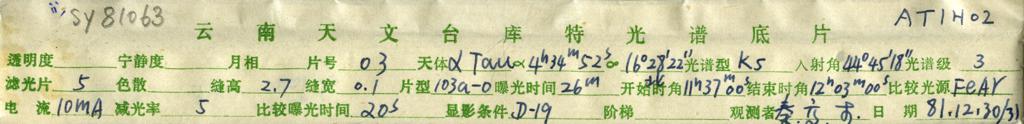 SY81063
云南天文台库特光谱底片 AT1H02
透明度 宁静度 月相 片号 03 天体 α Tau α 4h34m52s δ 16°28′22″ 光谱型 K5 入射角 44°45′18″ 光谱级 3
滤光片 5 色散 缝高 2.7 缝宽 0.1 片型 103a-O 曝光时间 26m 开始时角 11h37m00s 结束时角 12h03m00s 比较光源 FeAr
电流 10mA 减光率 5 比较曝光时间 20s 显影条件 D-19 阶梯 观测者 日期 81.12.30/31